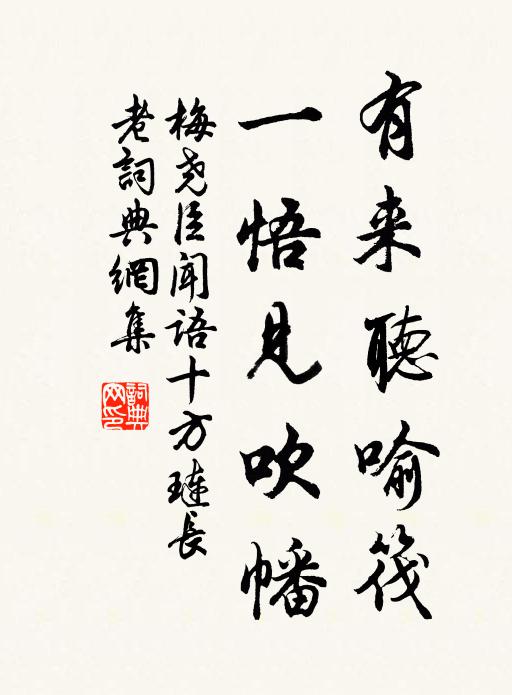 有来聽喻筏
一悟見吹幡
梅尧臣闻語十方璉長
老詞典網集
詞典
网印